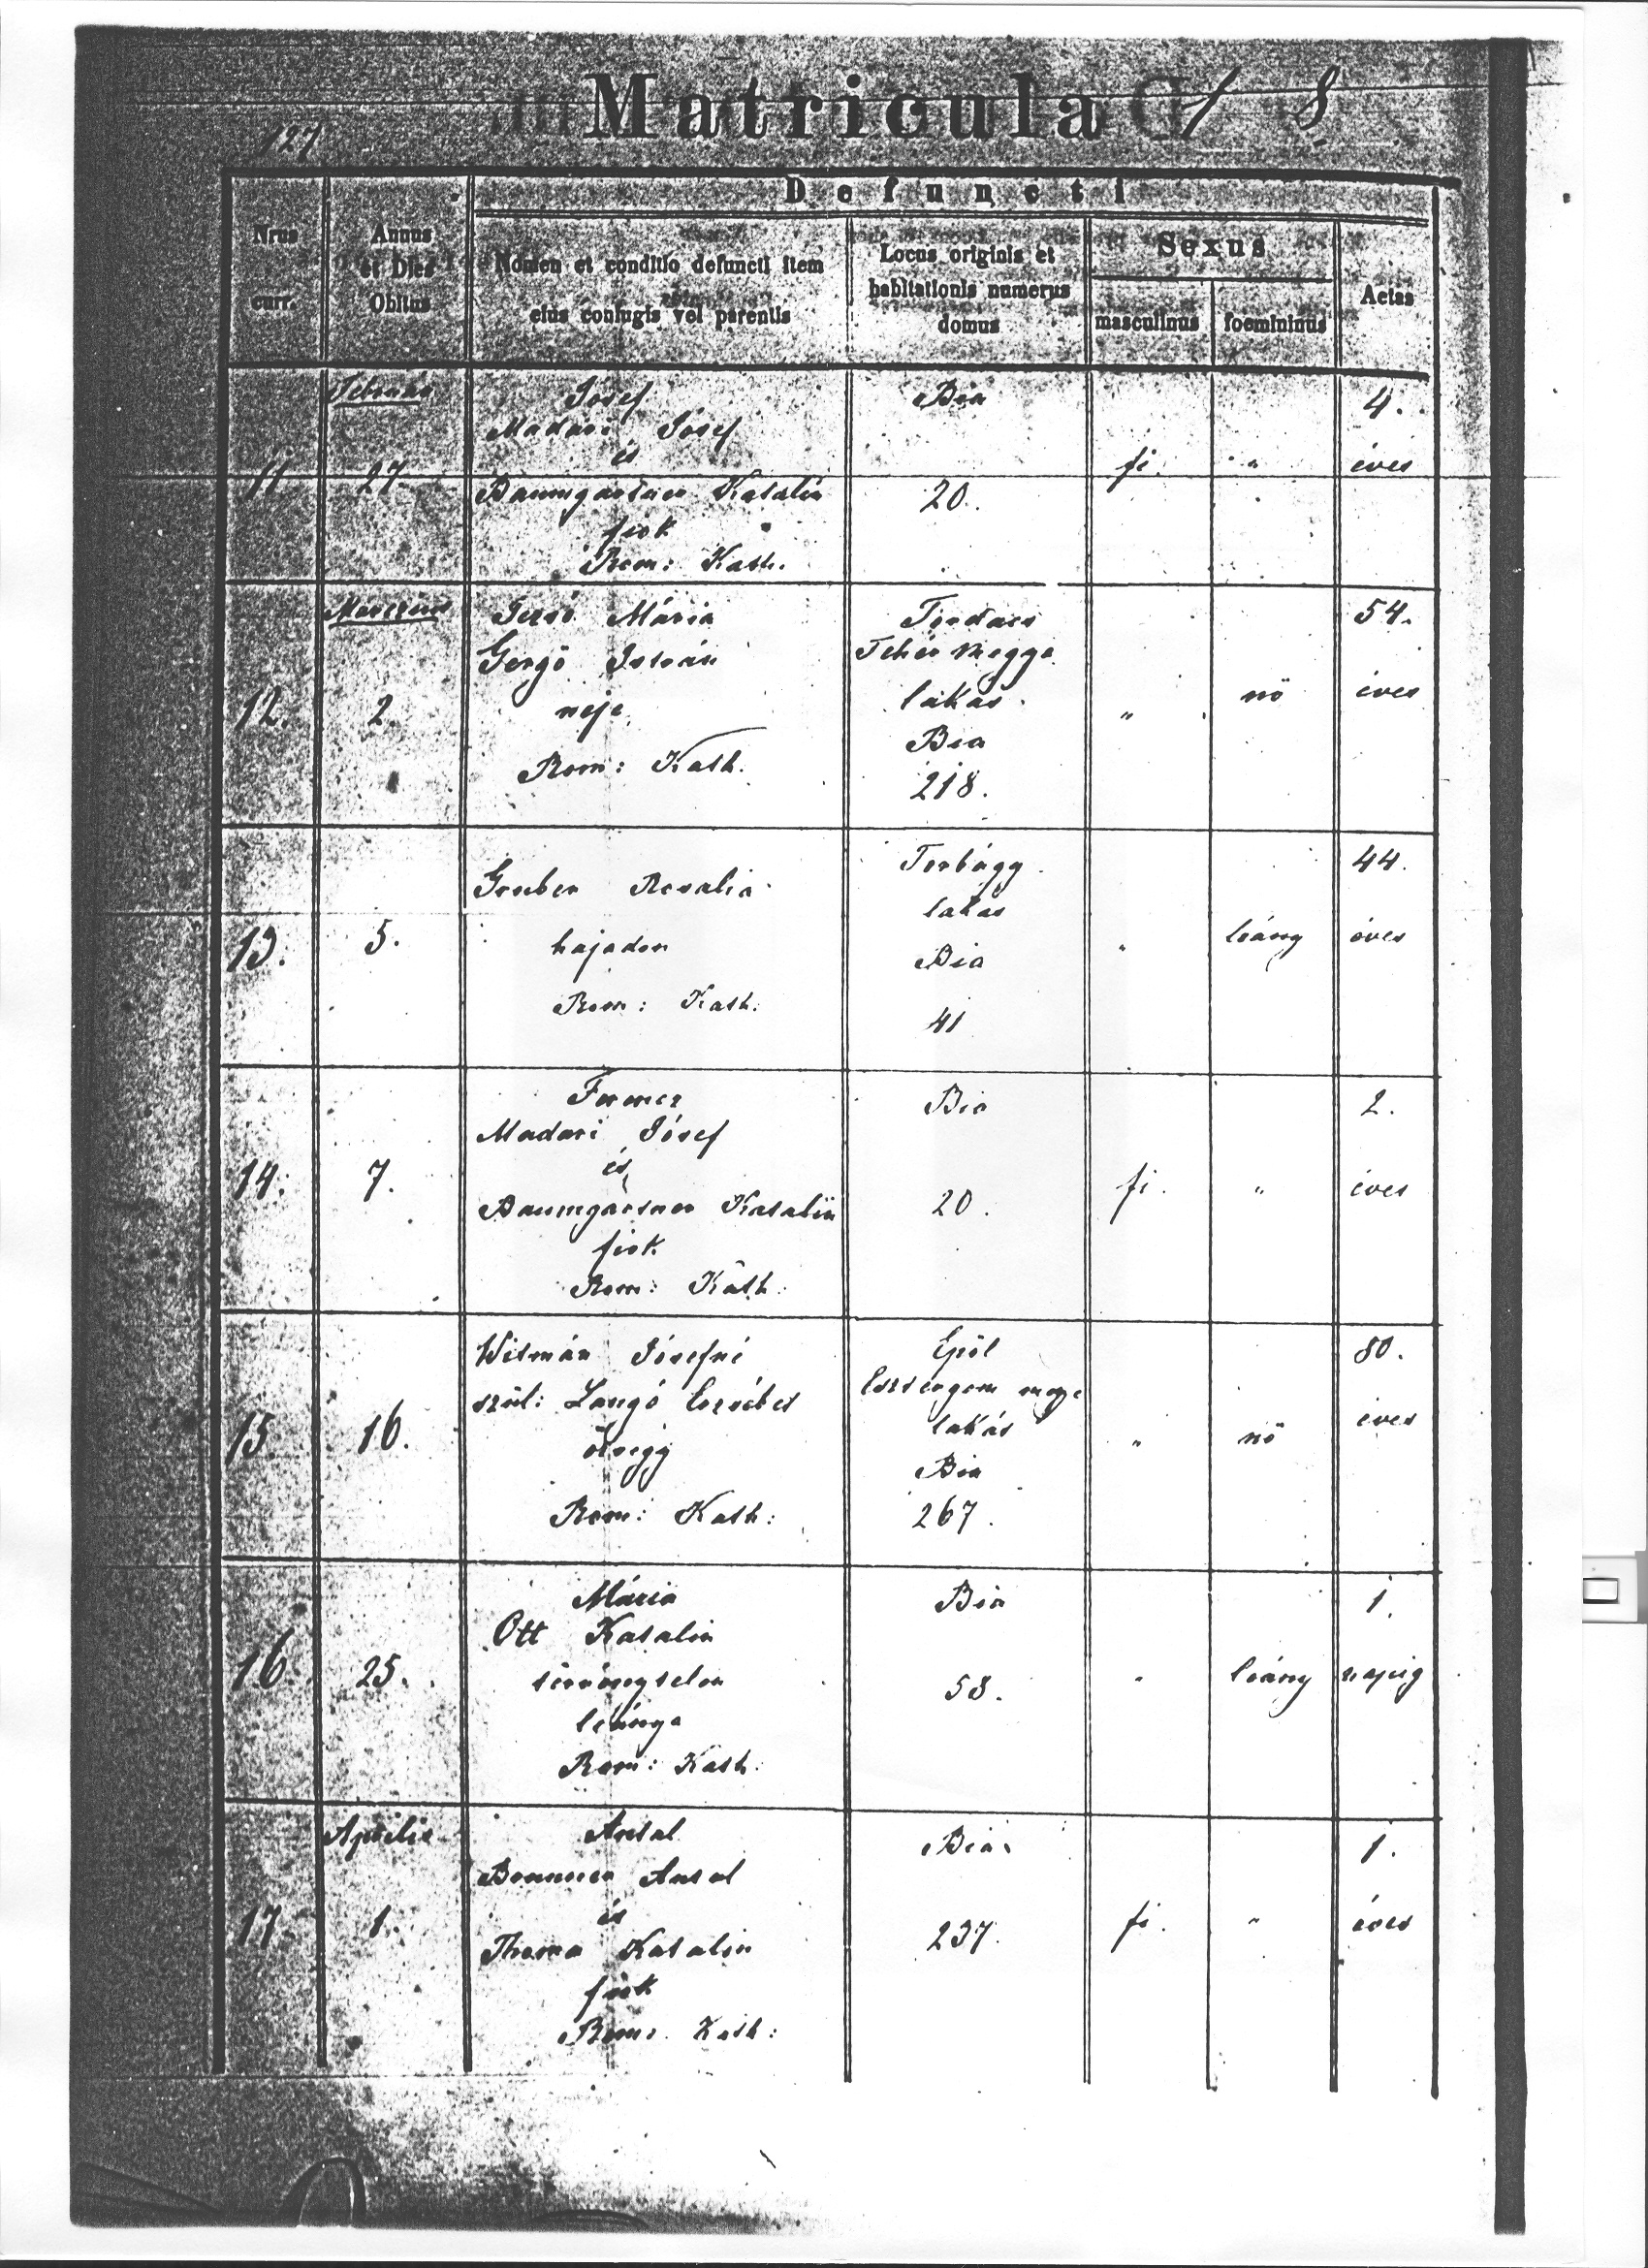 127
Matricula
8
Defuncti
Nrus curr.
Annus et Dies Obitus
Nomen et conditio defuncti item eius coniugis vel parentis
Locus originis et habitationis numerus domus
Sexus
masculinus
foemininus
Aetas
Február
11
27.
Jósef
Madari Jósef
és
Baumgartner Katalin
fiok
Rom: Kath.
Bia
20.
fi.
"
4.
éves
Marczius
12.
2.
Mária
Gergö István
neje
Rom: Kath.
Tordacs
Fehér megye
lakás
Bia
218.
"
nö
54.
éves
13.
5.
Gruber Rosalia
hajadon
Rom: Kath.
Torbágy
lakás
Bia
41
"
leány
44.
éves
14.
7.
Ferencz
Madari Jósef
és
Baumgartner Katalin
fiok
Rom: Kath.
Bia
20.
fi.
"
2.
éves
15
16.
Witmán Jósefné
szül: Langó Erzsébet
özvegy
Rom: Kath:
Epöl
Esztergom megye
lakás
Bia
267.
"
nö
80.
éves
16.
25.
Mária
Ott Katalin
törvénytelen
leánya
Rom: Kath:
Bia
58.
"
leány
1.
napig
Aprilis
17
1.
Antal
Brunner Antal
és
Thoma Katalin
fiok
Rom: Kath:
Bia
237.
fi.
"
1.
éves